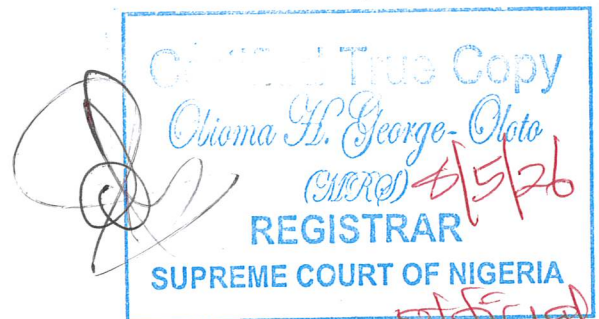 Certified True Copy
Obioma H. George-Oloto
(MRS) 8/5/26
REGISTRAR
SUPREME COURT OF NIGERIA